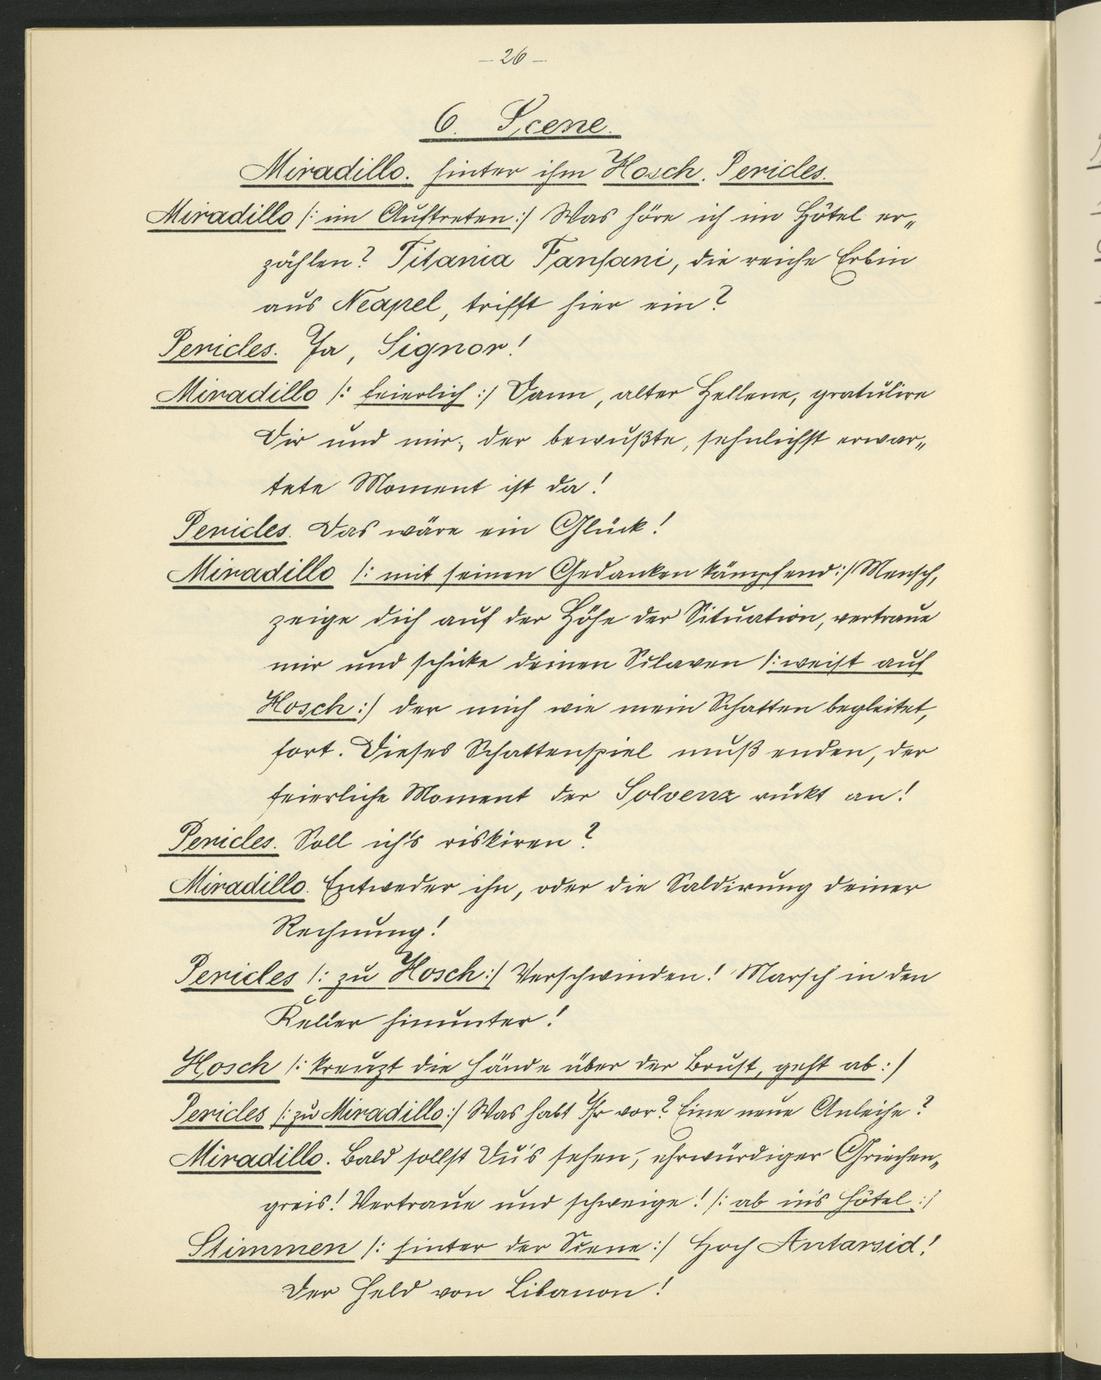 – 26 –
6. Scene.
Miradillo. hinter ihm Hosch. Pericles.
Miradillo /: im Auftreten :/ Was höre ich im Hôtel er„
zählen? Titania Fanfani, die reiche Erbin
aus Neapel, trifft hier ein?
Pericles. Ja, Signor!
Miradillo /: feierlich :/ Dann, alter Hellene, gratulire
Dir und mir, der bewußte, sehnlichst erwar„
tete Moment ist da!
Pericles. Das wäre ein Glück!
Miradillo /: mit seinen Gedanken kämpfend :/ Mensch,
zeige dich auf der Höhe der Situation, vertraue
mir und schicke deinen Sclaven /: weist auf
Hosch :/ der mich wie mein Schatten begleitet,
fort. Dieses Schattenspiel muß enden, der
feierliche Moment der Solvenz rückt an!
Pericles. Soll ich's riskiren?
Miradillo. Entweder ihn, oder die Saldirung deiner
Rechnung!
Pericles /: zu Hosch :/ Verschwinden! Marsch in den
Keller hinunter!
Hosch /: kreuzt die Hände über der Brust, geht ab :/
Pericles /: zu Miradillo :/ Was habt Ihr vor? Eine neue Anleihe?
Miradillo. Bald sollst Du's sehen, ehrwürdiger Griechen„
greis! Vertraue und schweige! /: ab in's Hôtel :/
Stimmen /: hinter der Scene :/ Hoch Antarsid!
Der Held von Libanon!